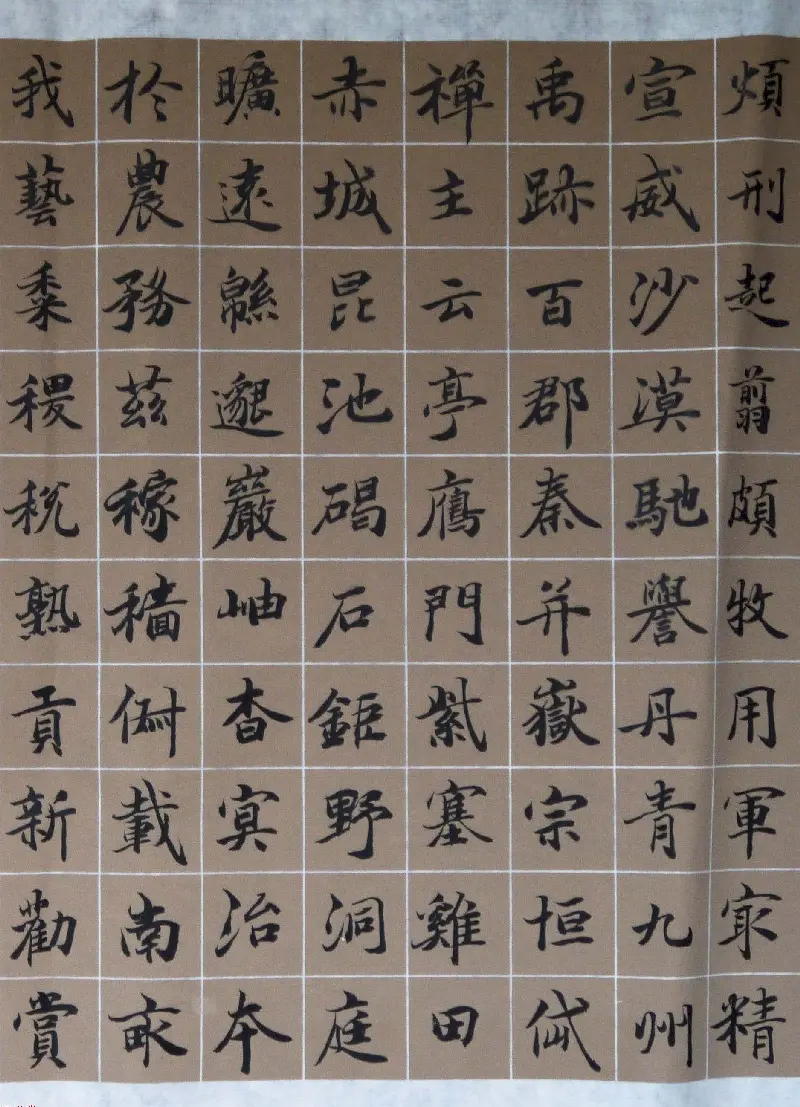 煩刑起翦頗牧用軍㝡精
宣威沙漠馳譽丹青九州
禹跡百郡秦并嶽宗恒岱
禪主云亭鴈門紫塞雞田
赤城昆池碣石鉅野洞庭
曠遠緜邈巖岫杳冥治本
於農務茲稼穡俶載南畝
我藝黍稷稅熟貢新勸賞